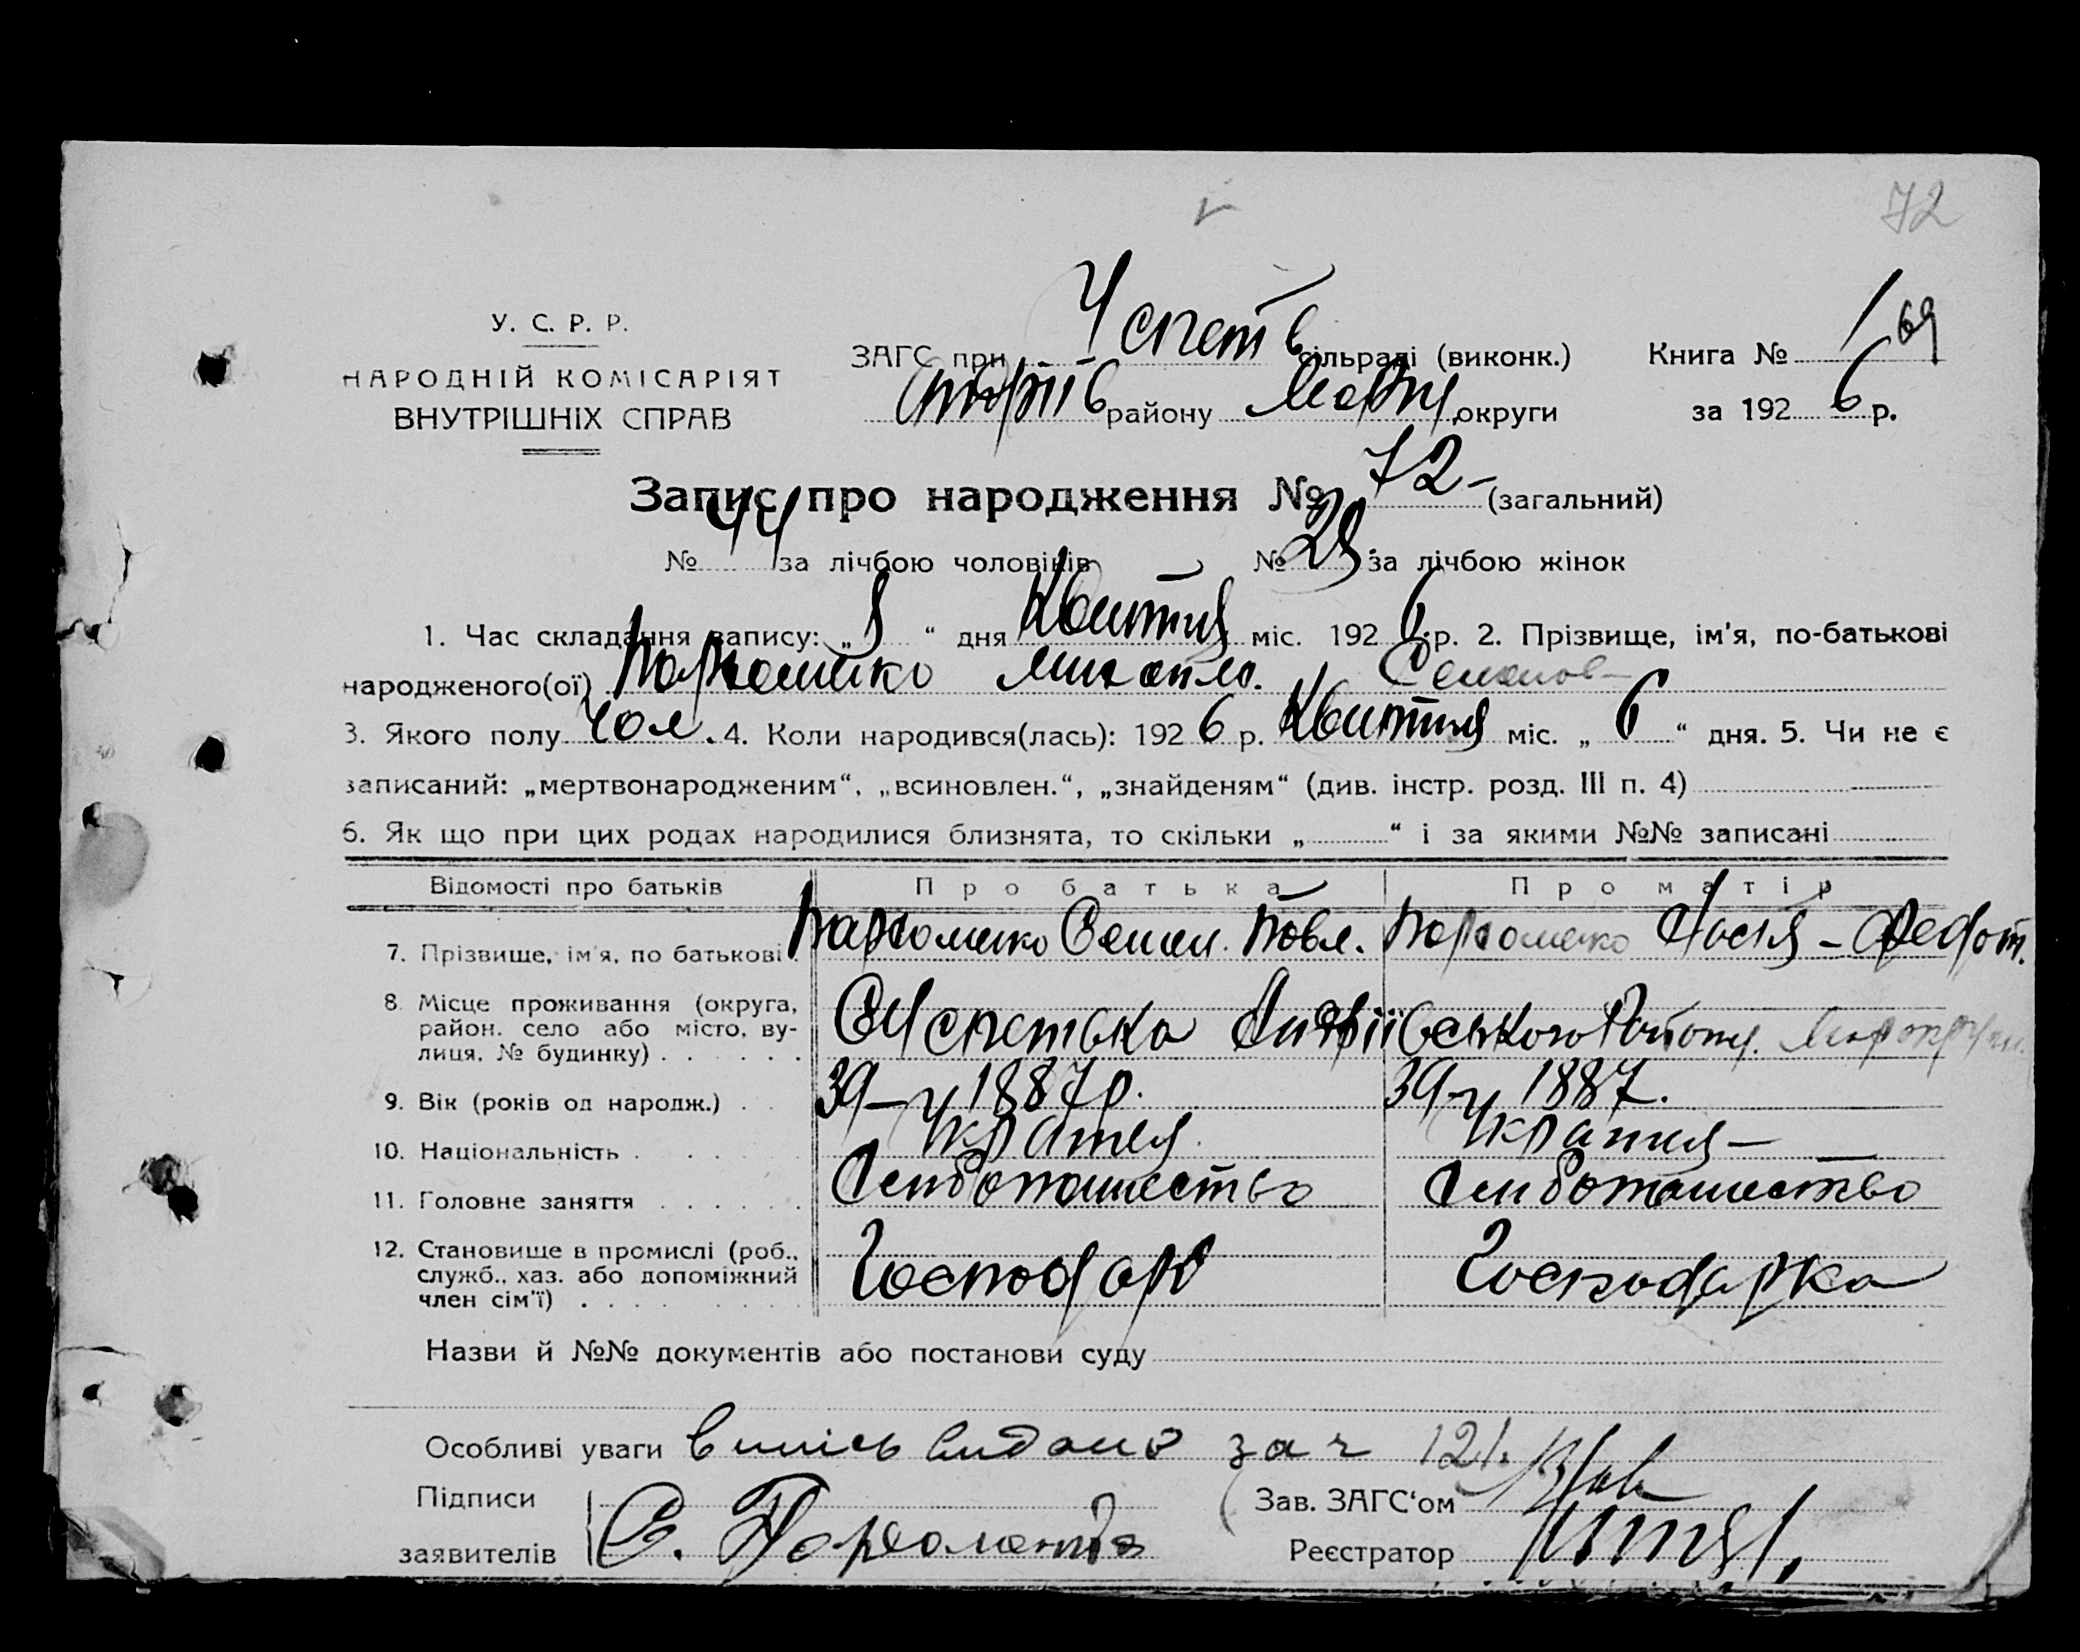 72
У. С. Р. Р.
НАРОДНІЙ КОМІСАРІЯТ
ВНУТРІШНІХ СПРАВ
ЗАГС при Успетв сільраді (виконк.) Книга № 1 69
Андріїв району Маріуп округи за 192 6 р.
Запис про народження № 72 (загальний)
№ 44 за лічбою чоловіків № 28 за лічбою жінок
1. Час складання запису: „ 8 “ дня Квитня міс. 192 6 р. 2. Прізвище, ім'я, по-батькові
народженого(ої) Пархоменко Михайло. Семенов
3. Якого полу Чол. 4. Коли народився(лась): 192 6 р. Квитня міс. „ 6 “ дня. 5. Чи не є
записаний: „мертвонародженим“, „всиновлен.“, „знайденям“ (див. інстр. розд. III п. 4)
6. Як що при цих родах народилися близнята, то скільки „ “ і за якими №№ записані
Відомості про батьків Про батька Про матір
7. Прізвище, ім'я, по батькові. Пархоменко Семен. Повл. Пархоменко Настя - Федот.
8. Місце проживання (округа, район, село або місто, ву-
лиця, № будинку) Успетовка Андріївського Району.
9. Вік (років од народж.) 39-и 1887 р. 39-и 1887.
10. Національність Україня Україня
11. Головне заняття Хлиборобство Хлиборобство
12. Становище в промислі (роб.,
служб., хаз. або допоміжний
член сім'ї) Господарь Господарка
Назви й №№ документів або постанови суду
Особливі уваги випись видано за ч 121.
Підписи Зав. ЗАГС‘ом
заявителів С. Пархоменко Реєстратор